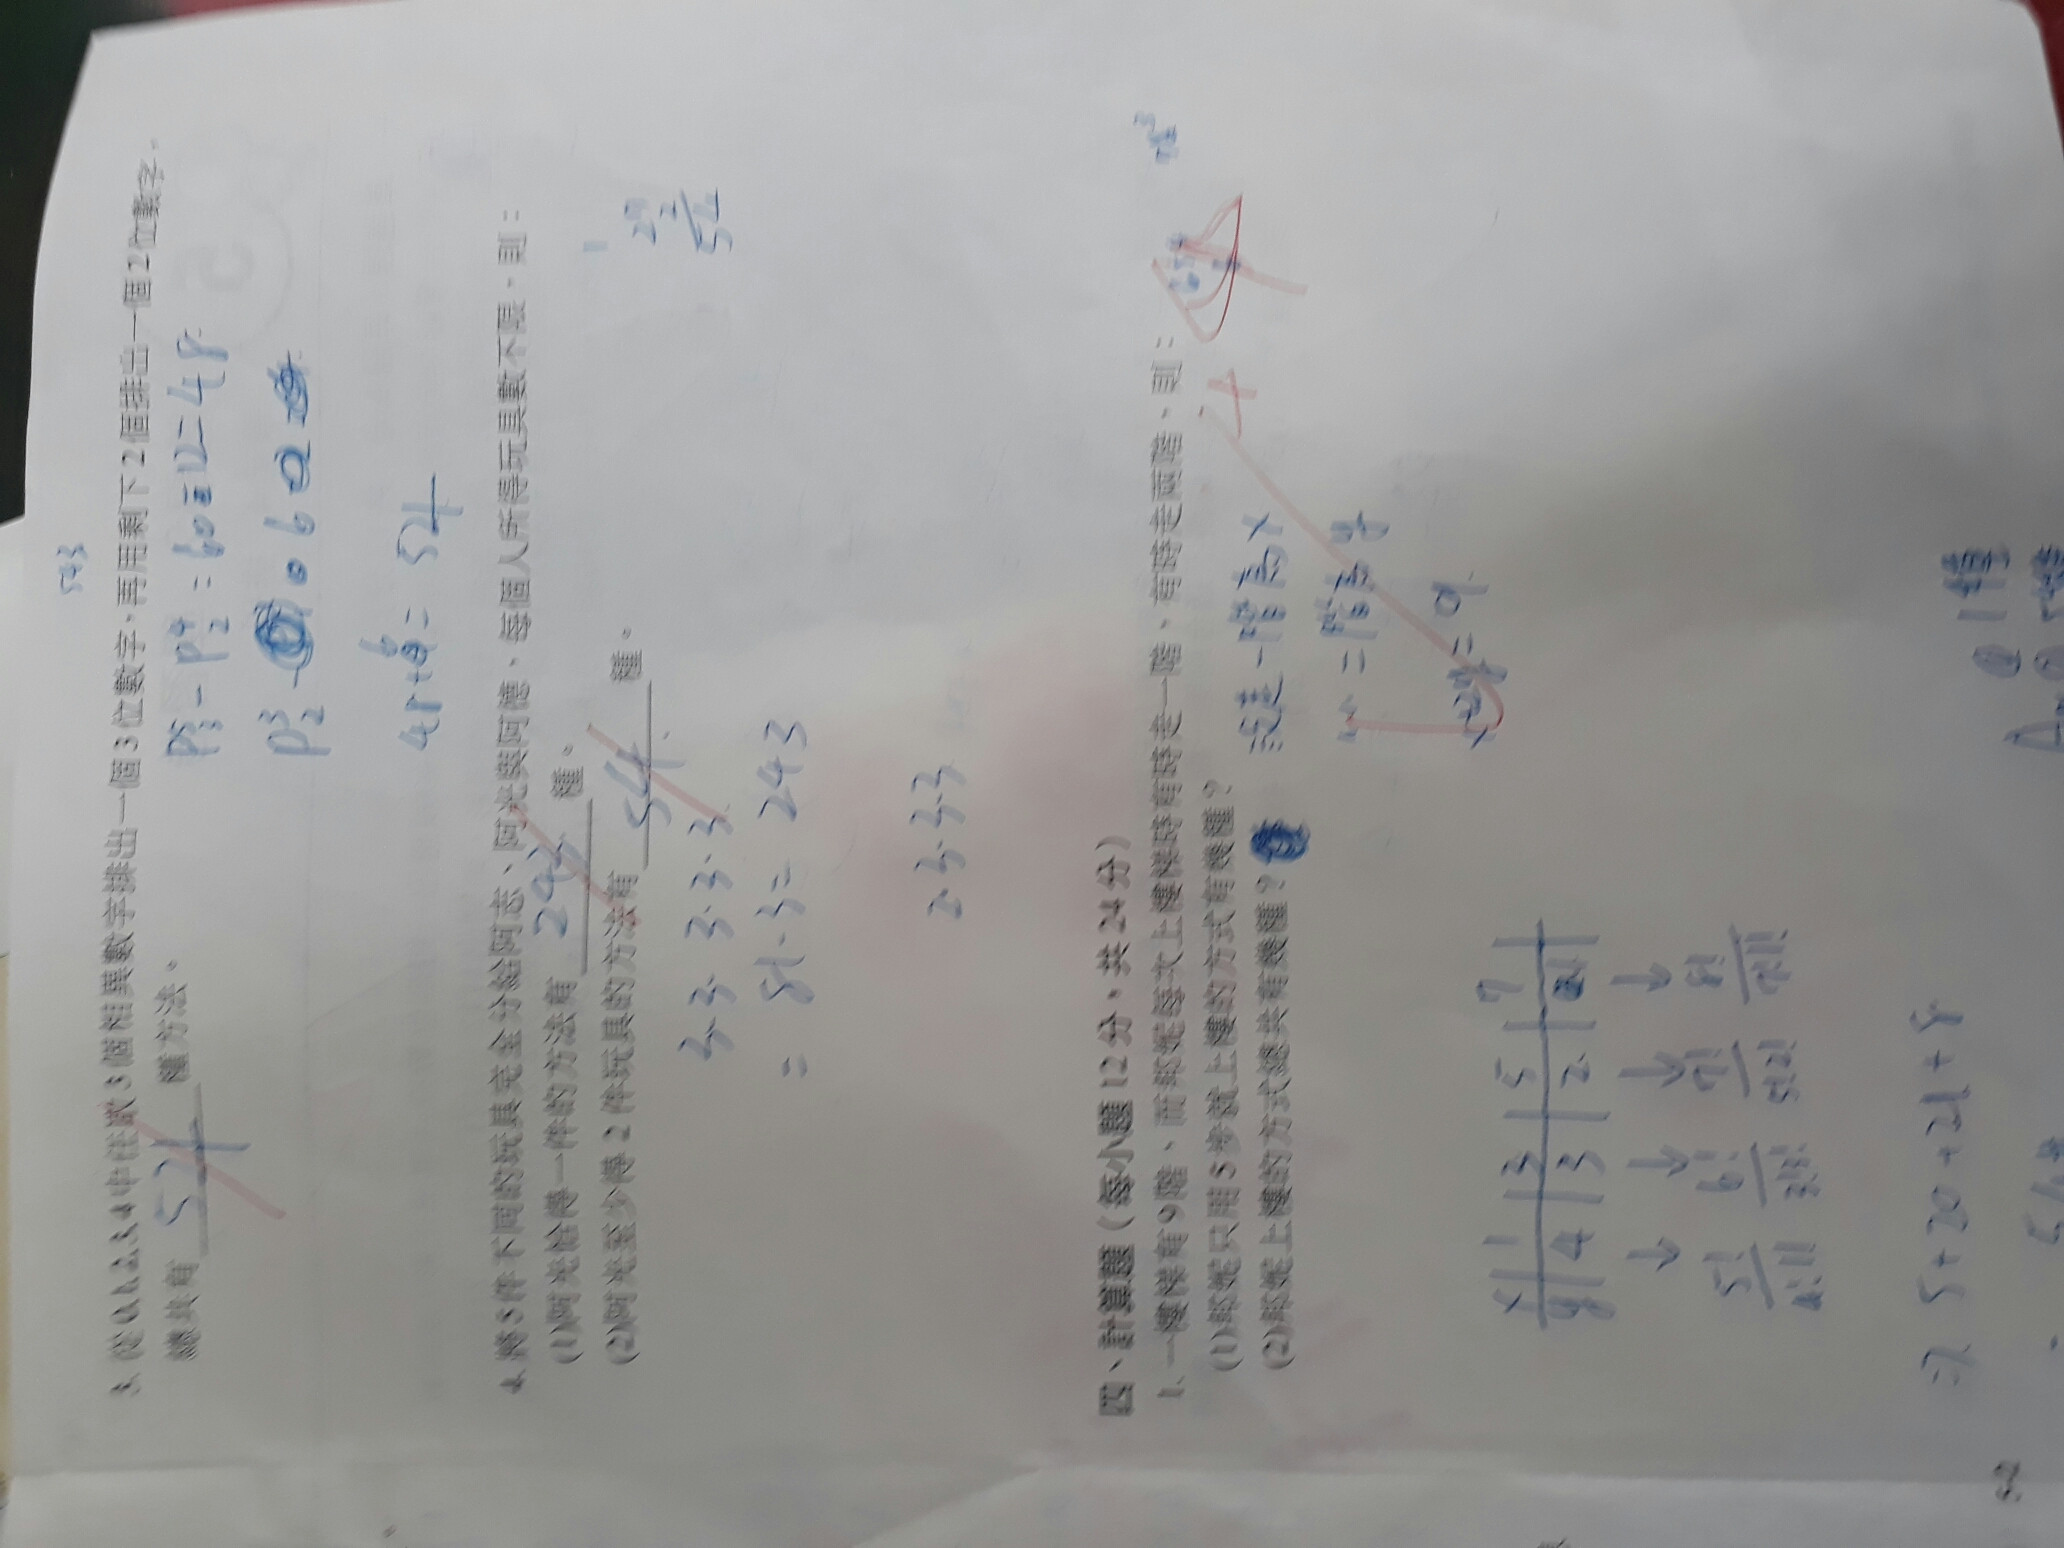 543
3. 從 0, 1, 2, 3, 4 中任取 3 個相異數字排出一個 3 位數字，再用剩下 2 個排出一個 2 位數字。
總共有 54 種方法。
P⁵₃ - P⁴₂ = 60 - 12 = 48
P³₂ 6
48+6 = 54
4. 將 5 件不同的玩具完全分給阿志、阿光與阿德，每個人所得玩具數不限，則：
(1)阿光恰得一件的方法有 243 種。
(2)阿光至少得 2 件玩具的方法有 54 種。
1
27
2
54
3·3·3·3·3
= 81·3 = 243
2·3·3·3
四、計算題（每小題 12 分，共 24 分）
1. 一樓梯有 9 階，而邱妮每次上樓梯時有時走一階，有時走兩階，則：
(1)邱妮只用 5 步就上樓的方式有幾種？
(2)邱妮上樓的方式總共有幾種？
設走一階為 x
〃 = 階為 y
x+2y = 9
x 1 3 5 7
y 4 3 2 1
↓ ↓ ↓ ↓
5! 6! 7! 8!
4!1! 3!3! 5!2! 7!1!
=> 5 + 20 + 21 + 8
5-2